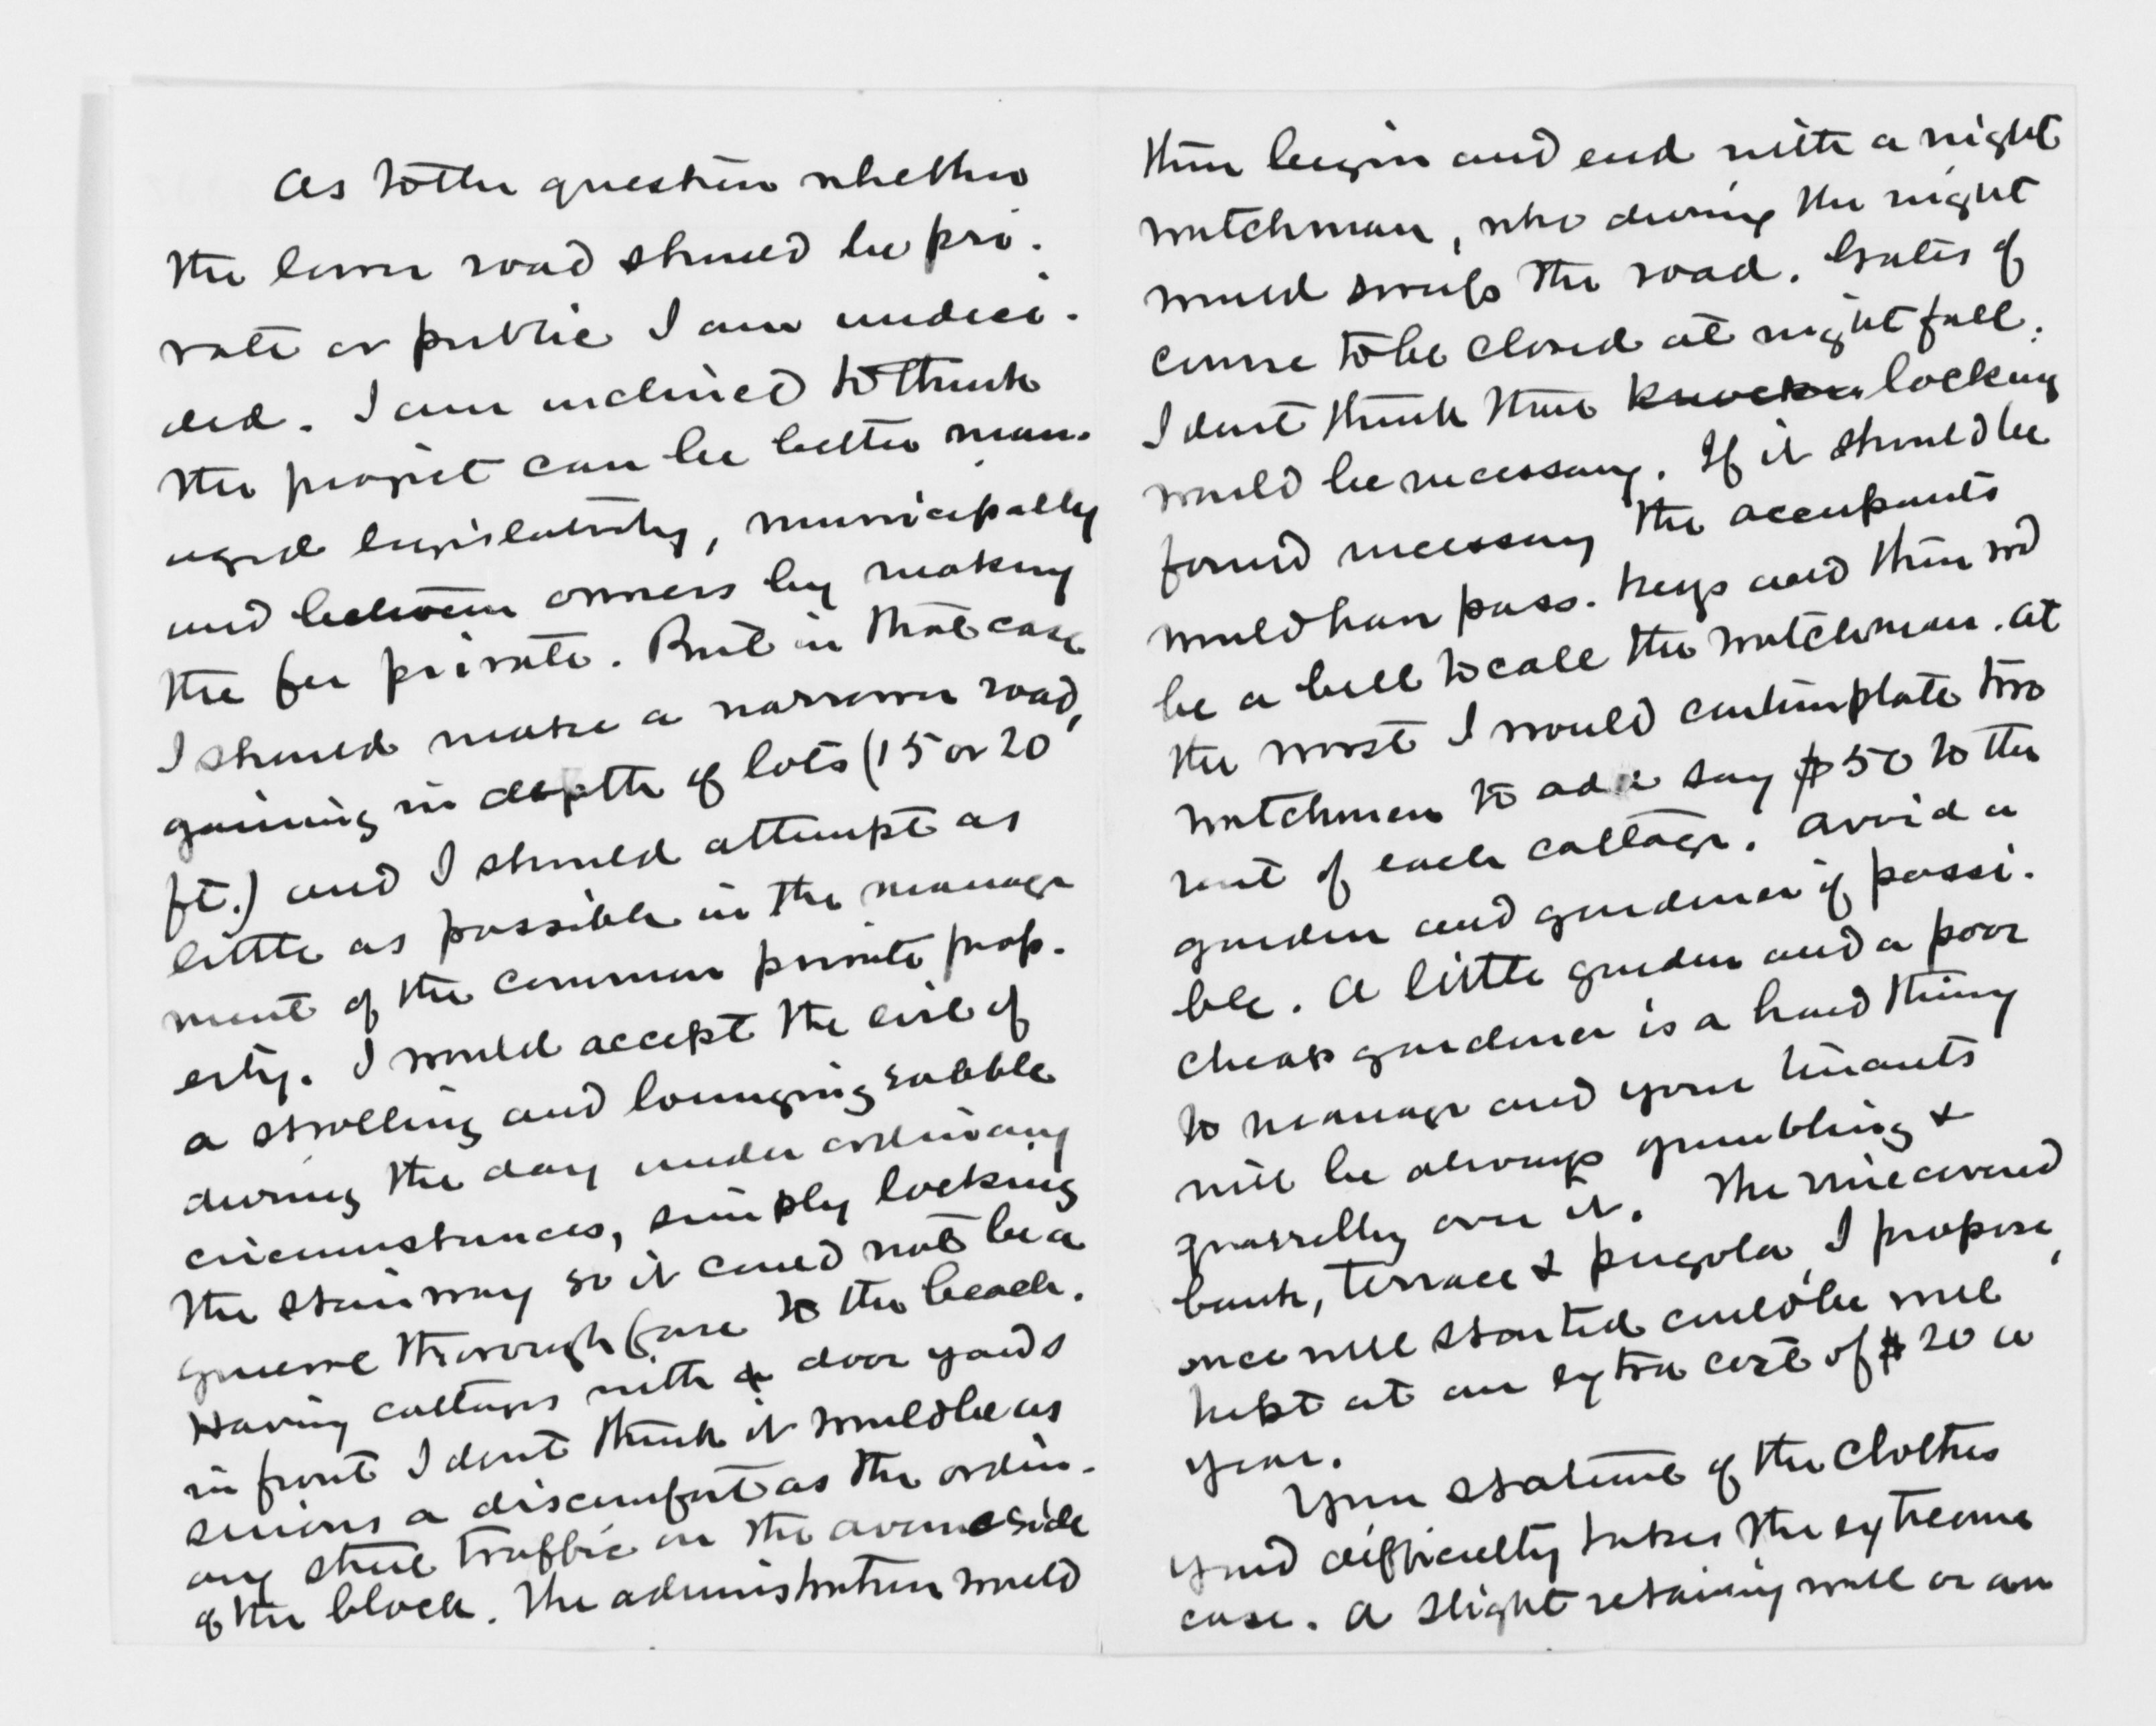 As to the question whether
the lower road should be pri-
vate or public I am undeci-
ded. I am inclined to think
the project can be better man-
aged legislatively, municipally
and between owners by making
the fee private. But in that case
I should make a narrower road,
gaining in depth of lots (15 or 20
ft.) and I should attempt as
little as possible in the manage
ment of the common private prop-
erty. I would accept the evil of
a strolling and lounging rabble
during the day under ordinary
circumstances, simply locking
the stairway so it could not be a
general thoroughfare to the beach.
Having cottages with & door yards
in front I dont think it would be as
serious a discomfort as the ordin-
ary street traffic on the avenue side
of the block. The administration would
then begin and end with a night
watchman, who during the night
would sweep the road. Gates of
course to be closed at night fall.
I dont think their knocking locking
would be necessary. If it should be
found necessary the occupants
would have pass-keys and there wd
be a bell to call the watchman. At
the worst I would contemplate two
watchmen to add say $50 to the
rent of each cottage. Avoid a
garden and gardener if possi-
ble. A little garden and a poor
cheap gardener is a hard thing
to manage and your tenants
will be always grumbling &
quarrelling over it. The vine covered
bank, terrace & pergola, I propose,
once well started could be well
kept at an extra cost of $20 a
year.
Your statement of the clothes
yard difficulty takes the extreme
case. A slight retaining wall or an